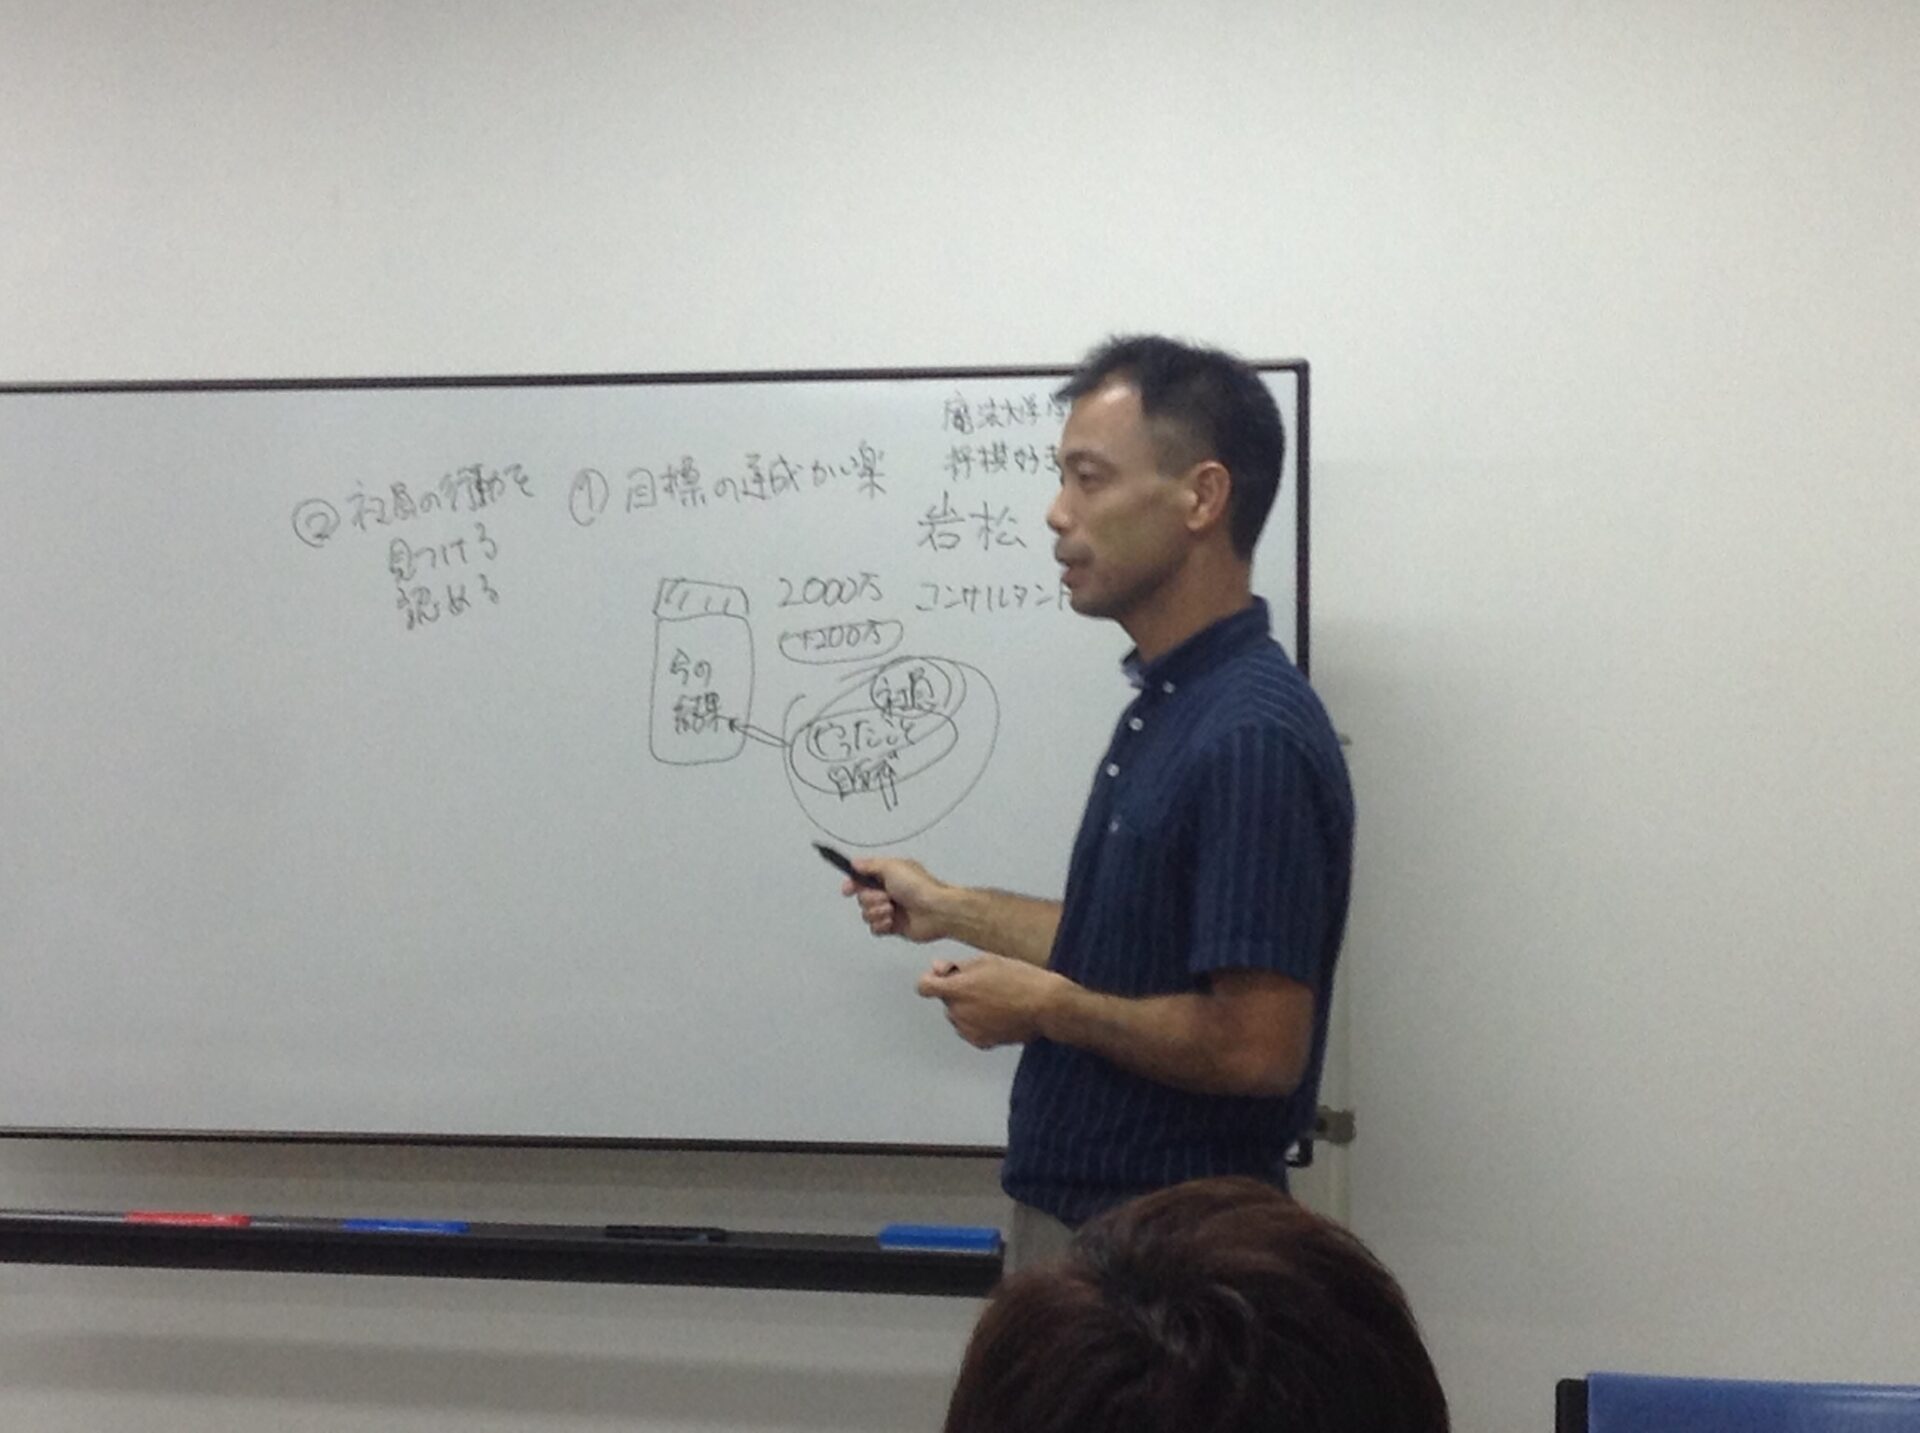 魔法大学学
将棋好き
岩松
コンサルタント
① 目標の達成が楽
2000万
+200万
今の
結果
社員
やったこと
② 社員の行動を
見つける
認める